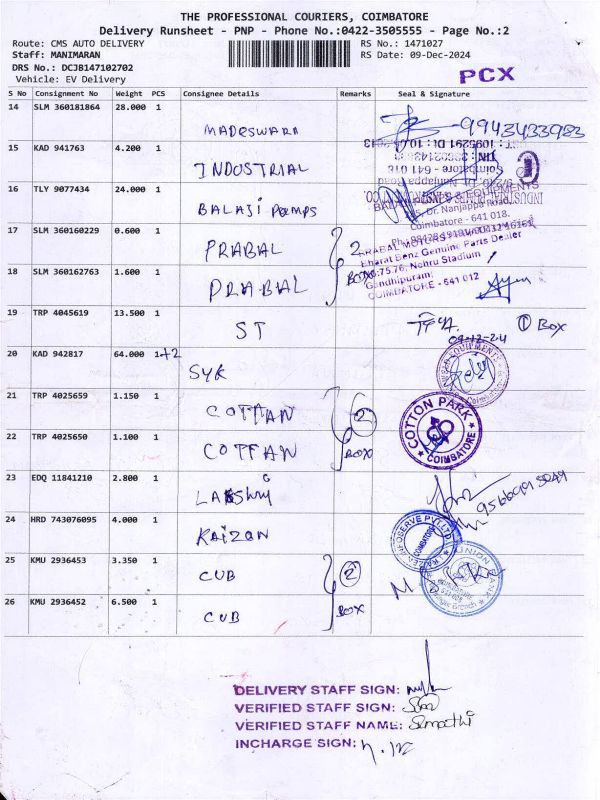 THE PROFESSIONAL COURIERS, COIMBATORE
Delivery Runsheet - PNP - Phone No.:0422-3505555 - Page No.:2
Route: CMS AUTO DELIVERY RS No.: 1471027
Staff: MANIMARAN RS Date: 09-Dec-2024
DRS No.: DCJB147102702
Vehicle: EV Delivery
PCX
S No Consignment No Weight PCS Consignee Details Remarks Seal & Signature
14 SLM 360181864 28.000 1
MADESWARA 9943433983
15 KAD 941763 4.200 1
INDUSTRIAL
16 TLY 9077434 24.000 1
BALAJI PUMPS
Coimbatore - 641 018.
17 SLM 360160229 0.600 1
PRABAL 2
PRABAL MOTORS
Bharat Benz Genuine Parts Dealer
75,76, Nehru Stadium
18 SLM 360162763 1.600 1
PRABAL BOX
Gandhipuram,
COIMBATORE - 641 012
19 TRP 4045619 13.500 1
ST 1 BOX
09-12-24
20 KAD 942817 64.000 1+2
SYK
21 TRP 4025659 1.150 1
COTTAN 2
COTTON PARK
COIMBATORE
22 TRP 4025650 1.100 1
COTTAN BOX
23 EDQ 11841210 2.800 1
24 HRD 743076095 4.000 1
KAIZAN
25 KMU 2936453 3.350 1
CUB 2
26 KMU 2936452 6.500 1
CUB BOX
DELIVERY STAFF SIGN:
VERIFIED STAFF SIGN:
VERIFIED STAFF NAME: Sumathi
INCHARGE SIGN: